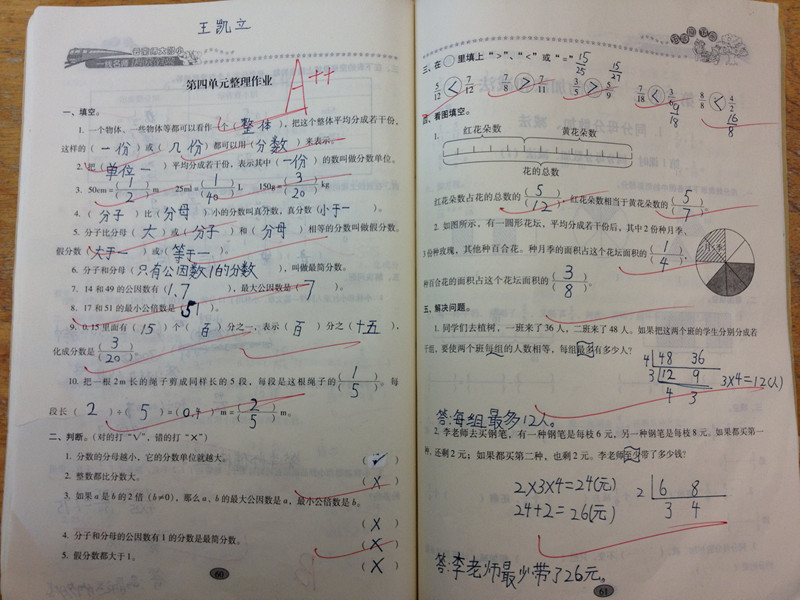 王凯立
云南师大附小
一线名师
第四单元整理作业
A++
一、填空。
1. 一个物体、一些物体等都可以看作一个(整体),把这个整体平均分成若干份,
这样的(一份)或(几份)都可以用(分数)来表示。
2. 把(单位一)平均分成若干份,表示其中(一份)的数叫做分数单位。
3. 50cm=(1/2)m 25ml=(1/40)L 150g=(3/20)kg
4. (分子)比(分母)小的分数叫真分数,真分数(小于一)。
5. 分子比分母(大)或(分子)和(分母)相等的分数叫做假分数。
假分数(大于一)或(等于一)。
6. 分子和分母(只有公因数1的分数),叫做最简分数。
7. 14和49的公因数有(1.7),最大公因数是(7)。
8. 17和51的最小公倍数是(51)。
9. 0.15里面有(15)个(百)分之一,表示(百)分之(十五),
化成分数是(3/20)。
10. 把一根2m长的绳子剪成同样长的5段,每段是这根绳子的(1/5)。每
段长(2)÷(5)=(0.4)m=(2/5)m。
二、判断。(对的打“√”,错的打“×”)
1. 分数的分母越小,它的分数单位就越大。 (✓)
2. 整数都比分数大。 (X)
3. 如果a是b的2倍(b≠0),那么a、b的最大公因数是a,最小公倍数是b。
(X)
4. 分子和分母的公因数有1的分数是最简分数。 (X)
5. 假分数都大于1。 (X)
60
三、在○里填上“>”、“<”或“=”。 15/25 15/27
5/12<7/12 7/8>7/11 3/5>5/9 7/18<3/6 8/8<4/2
9/18 16/8
四、看图填空。
1. 红花朵数 黄花朵数
花的总数
红花朵数占花的总数的(5/12),红花朵数相当于黄花朵数的(5/7)。
2. 如图所示,有一圆形花坛,平均分成若干份后,其中2份种月季,
3份种玫瑰,其他种百合花。种月季的面积占这个花坛面积的(1/4),
种百合花的面积占这个花坛面积的(3/8)。
五、解决问题。
1. 同学们去植树,一班来了36人,二班来了48人。如果把这两个班的学生分别分成若
干组,要使两个班每组的人数相等,每组最多有多少人?
4 48 36
3 12 9 3×4=12(人)
4 3
答:每组最多12人。
2. 李老师去买钢笔,有一种钢笔是每枝6元,另一种钢笔是每枝8元。如果都买第一
种,还剩2元;如果都买第二种,也剩2元。李老师至少带了多少钱?
2×3×4=24(元) 2 6 8
24+2=26(元) 3 4
答:李老师最少带了26元。
61